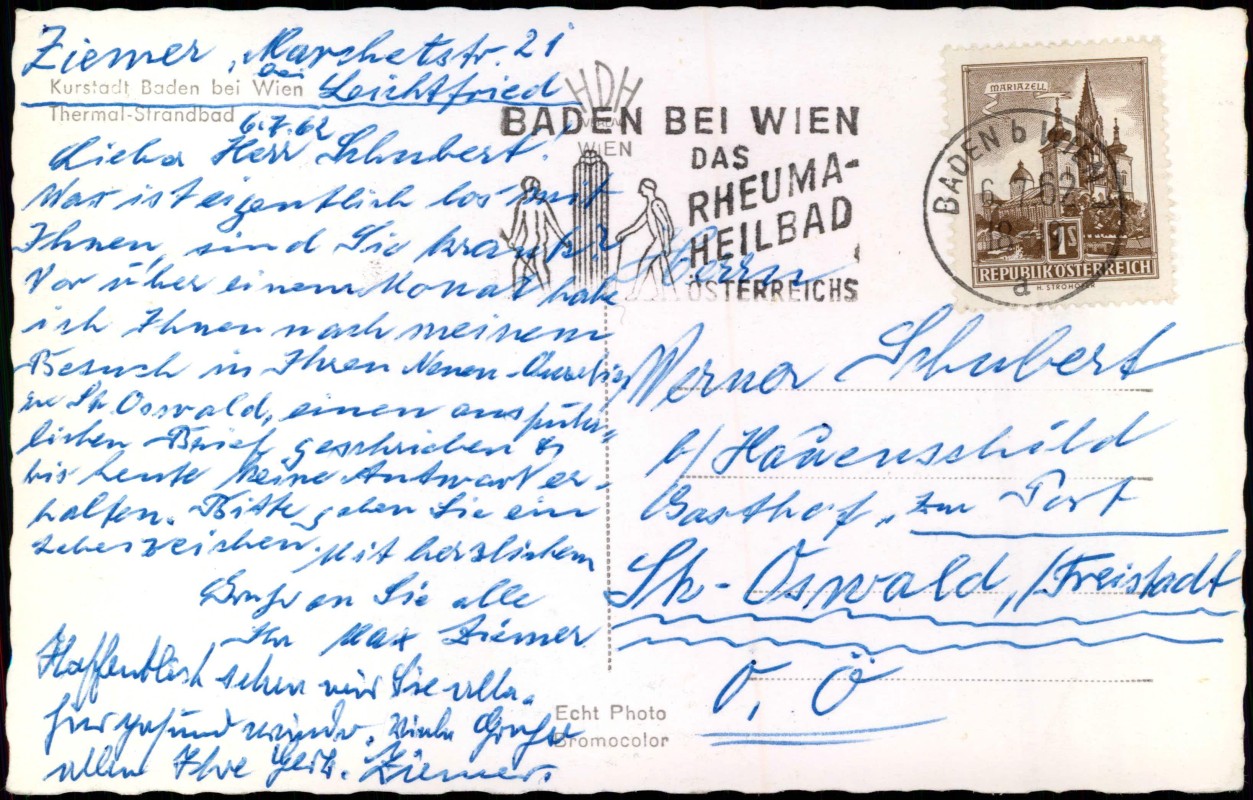 Ziemer, Marchetstr. 21
bei
Leichtfried
Kurstadt Baden bei Wien
Thermal-Strandbad
6.7.62
Lieber Herr Schubert!
Was ist eigentlich los mit
Ihnen, sind Sie krank?
Vor über einem Monat habe
ich Ihnen nach meinem
Besuch in Ihren Neuen-Quartier
in St. Oswald, einen ausführ-
lichen Brief geschrieben &
bis heute keine Antwort er-
halten. Bitte geben Sie ein
Lebenszeichen. Mit herzlichem
Gruß an Sie alle
Ihr Max Ziemer
Hoffentlich sehen wir Sie alle
gesund wieder. Viele Grüße
allen Ihre Ziemer.
HDH
VERLAG
WIEN
BADEN BEI WIEN
DAS
RHEUMA-
HEILBAD
ÖSTERREICHS
MARIAZELL
1 S
REPUBLIK ÖSTERREICH
H. STROHOFER
BADEN b WIEN
6. 62
18
a
Herrn
Werner Schubert
b/ Hauenschild
Gasthof „zur Post
St. Oswald, /Freistadt
O, Ö
Echt Photo
Bromocolor